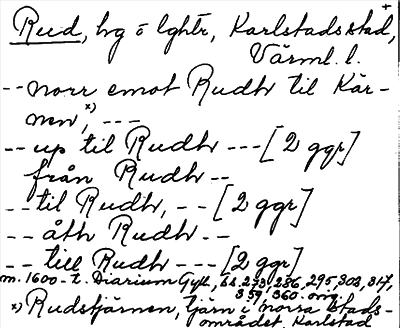 Rud, hg o lghtr, Karlstads stad,
Värml. l.
-- norr emot Rudh til Kär-
nen, x) ---
-- up til Rudh --- [2 ggr]
från Rudh --
-- til Rudh, -- [2 ggr]
-- åth Rudh --
-- till Rudh --- [2 ggr]
m. 1600-t. Diarium Gyll., 273, 286, 295, 303, 317,
359, 360. orig.
x) Rudstjärnen, tjärn i norra stads-
området, Karlstad